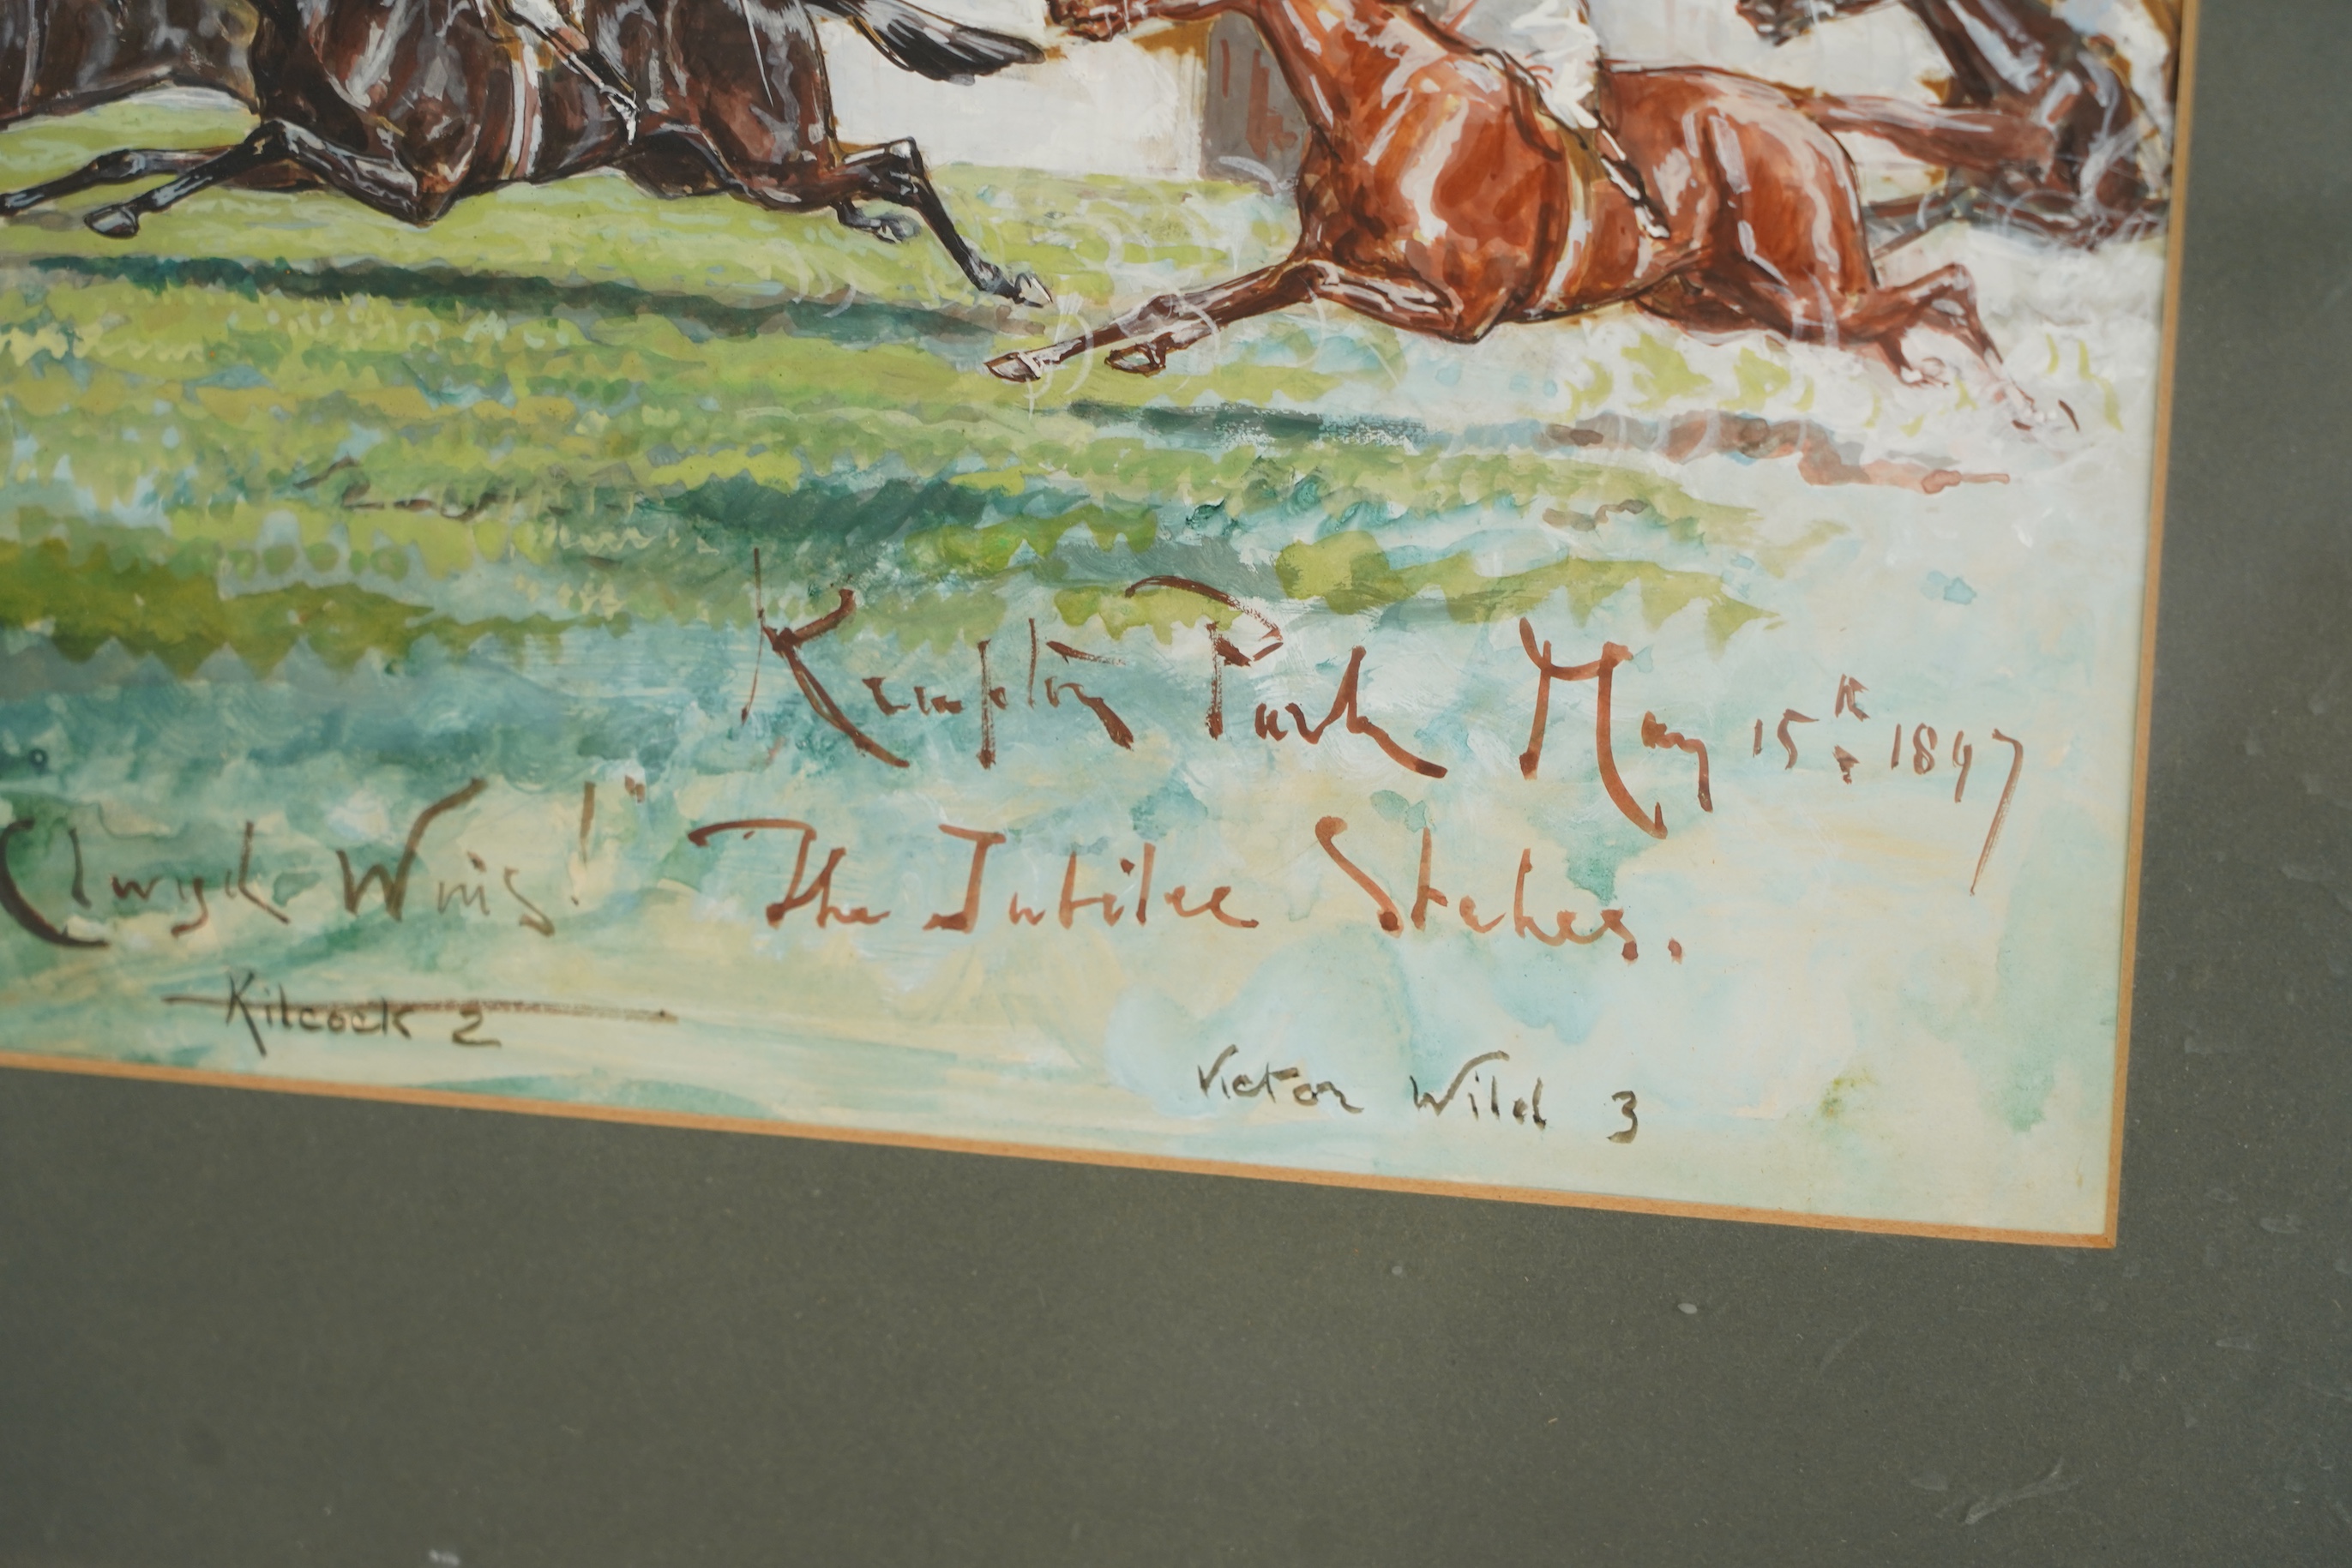 Kempton Park May 15th 1897
Clwyd Wins!" The Jubilee Stakes.
Kilcock 2
Victor Wild 3